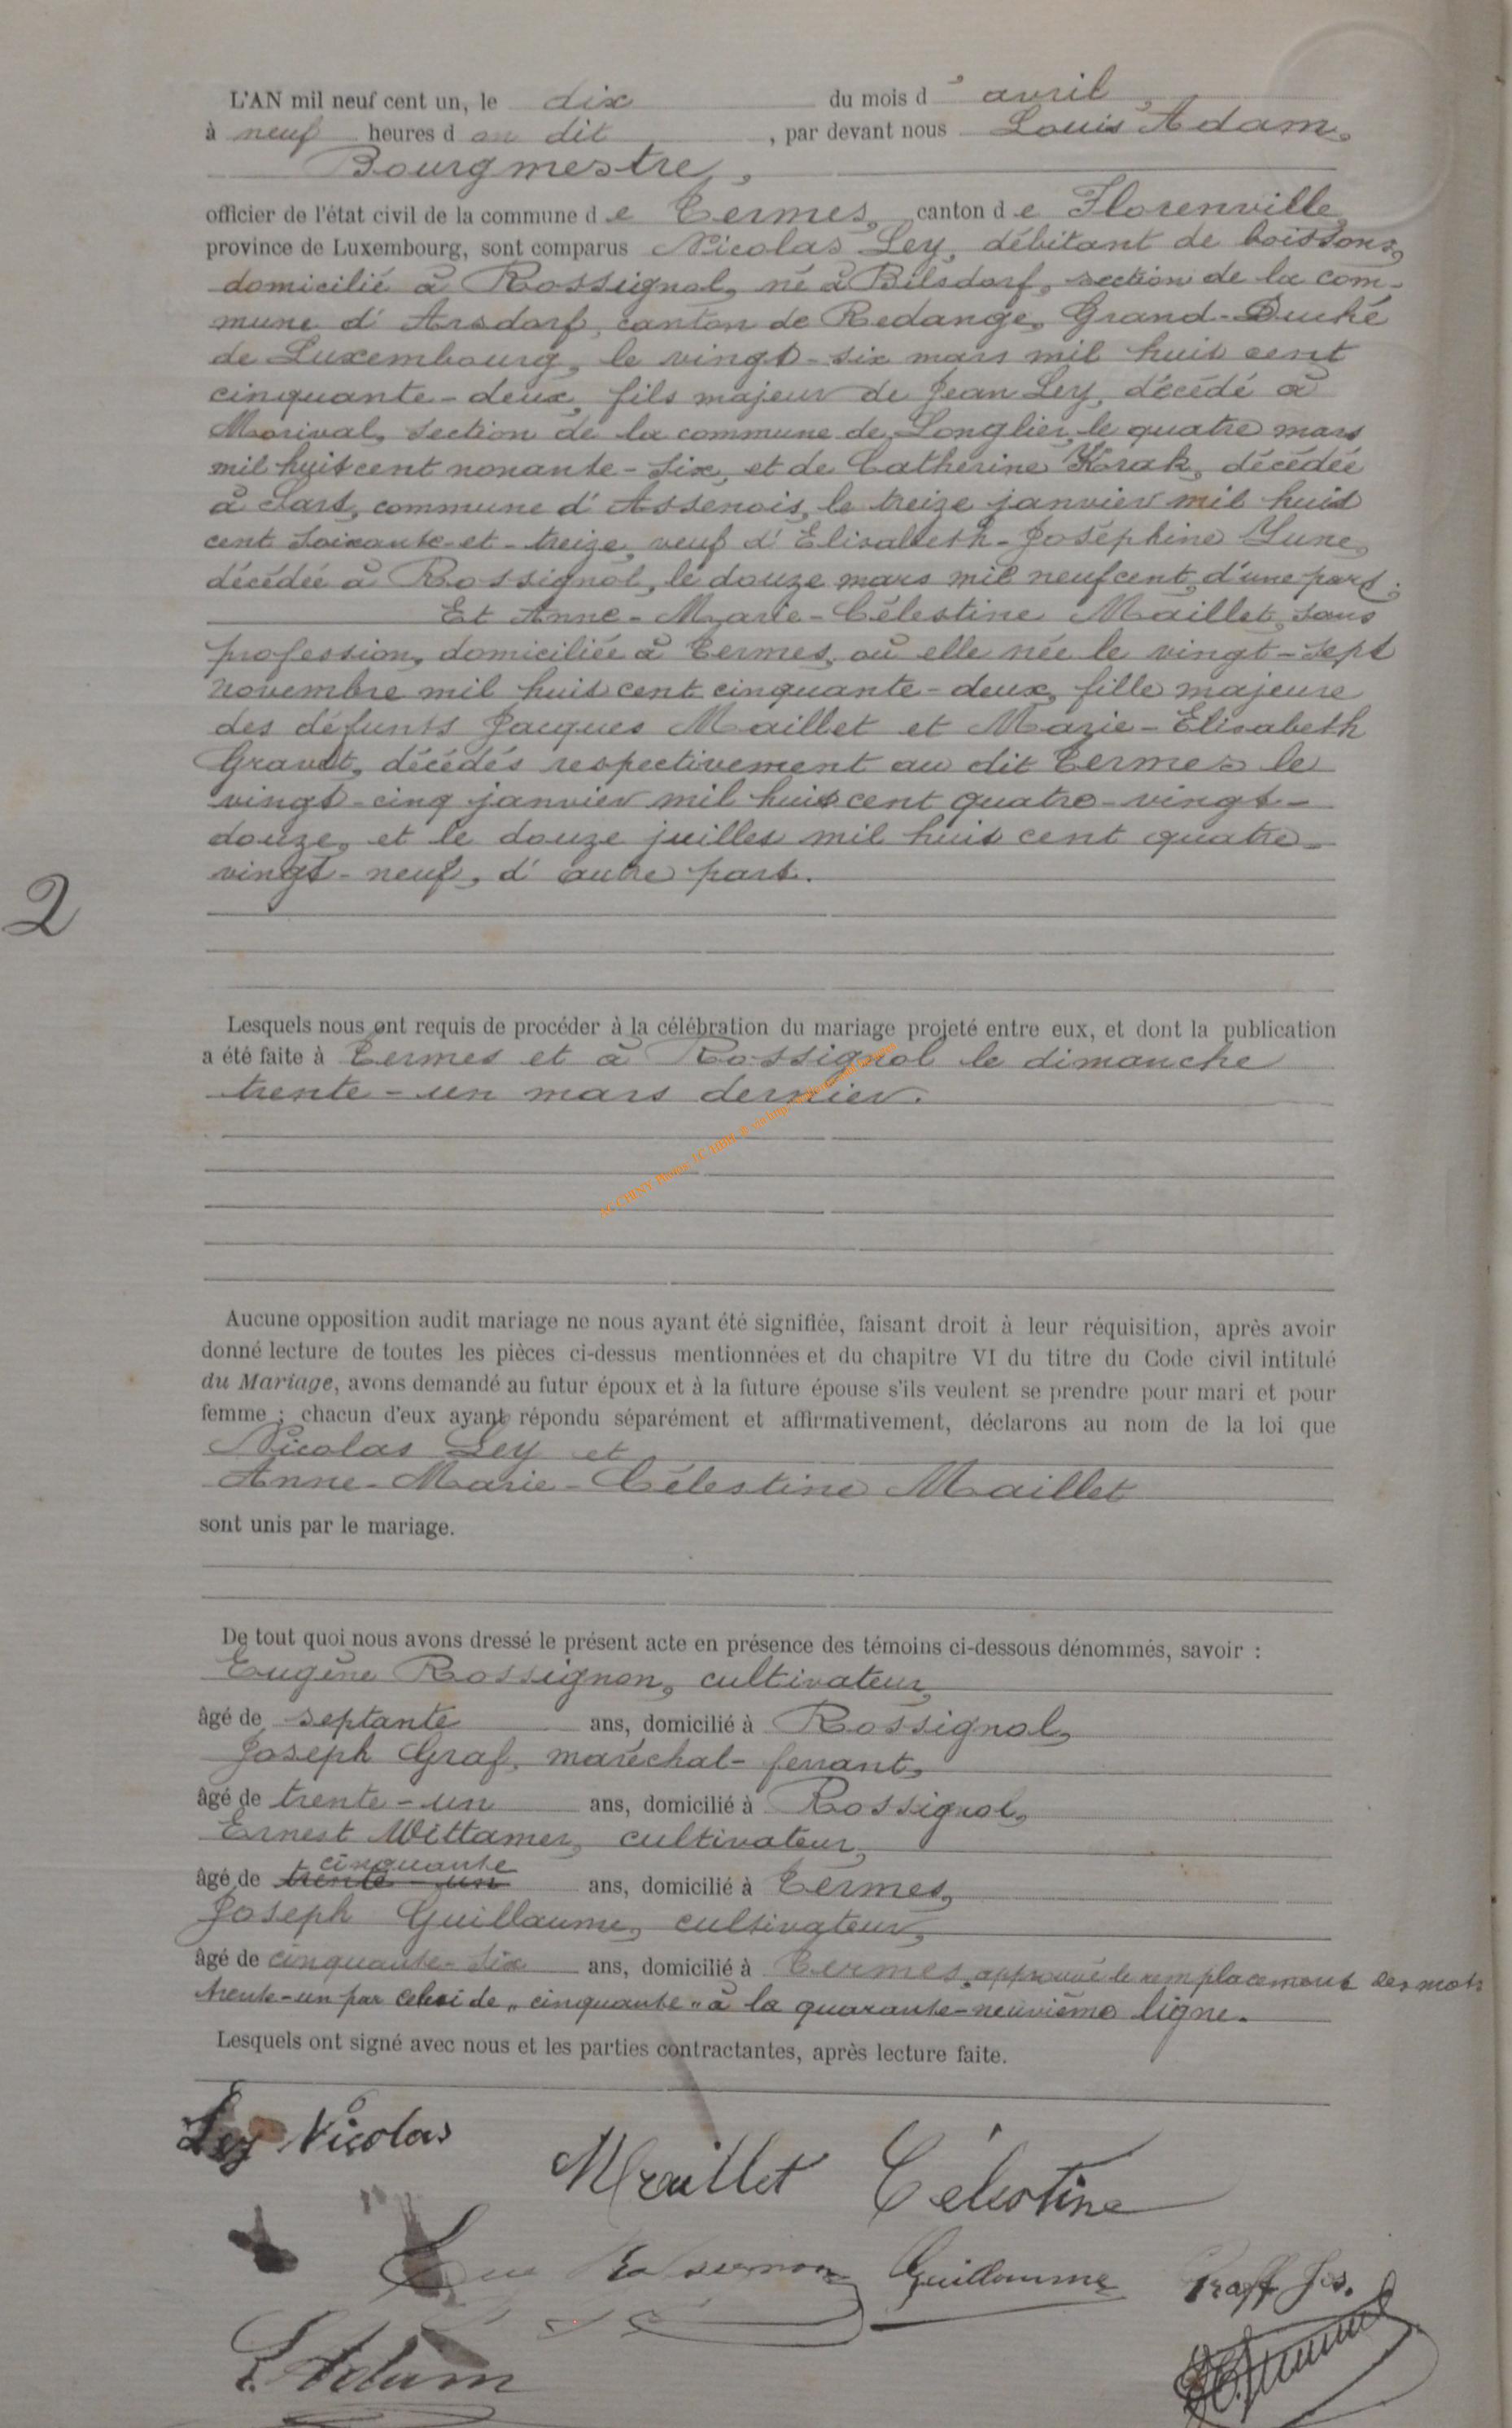 L'AN mil neuf cent un, le dix du mois d' avril,
à neuf heures d au dit, par devant nous Louis Adam,
Bourgmestre,
officier de l'état civil de la commune de Termes, canton de Florenville,
province de Luxembourg, sont comparus Nicolas Ley, débitant de boissons,
domicilié à Rossignol, né à Bilsdorf, section de la com-
mune d'Arsdorf, canton de Redange, Grand-Duché
de Luxembourg, le vingt-six mars mil huit cent
cinquante-deux, fils majeur de Jean Ley, décédé à
Morival, section de la commune de Longlier, le quatre mars
mil huit cent nonante-six, et de Catherine Korak, décédée
à Sart, commune d'Assenois, le treize janvier mil huit
cent soixante-et-treize, veuf d'Elisabeth-Joséphine Lune,
décédée à Rossignol, le douze mars mil neuf cent, d'une part;
Et Anne-Marie-Célestine Maillet, sans
profession, domiciliée à Termes, où elle née le vingt-sept
novembre mil huit cent cinquante-deux, fille majeure
des défunts Jacques Maillet et Marie-Elisabeth
décédés respectivement au dit Termes le
vingt-cinq janvier mil huit cent quatre-vingt-
douze, et le douze juillet mil huit cent quatre-
vingt-neuf, d'autre part.
2
Lesquels nous ont requis de procéder à la célébration du mariage projeté entre eux, et dont la publication
a été faite à Termes et à Rossignol le dimanche
trente-un mars dernier.
Aucune opposition audit mariage ne nous ayant été signifiée, faisant droit à leur réquisition, après avoir
donné lecture de toutes les pièces ci-dessus mentionnées et du chapitre VI du titre du Code civil intitulé
du Mariage, avons demandé au futur époux et à la future épouse s'ils veulent se prendre pour mari et pour
femme ; chacun d'eux ayant répondu séparément et affirmativement, déclarons au nom de la loi que
Nicolas Ley et
Anne-Marie-Célestine Maillet
sont unis par le mariage.
De tout quoi nous avons dressé le présent acte en présence des témoins ci-dessous dénommés, savoir :
Eugène Rossignon, cultivateur,
âgé de septante ans, domicilié à Rossignol,
Joseph Graf, maréchal-ferrant,
âgé de trente-un ans, domicilié à Rossignol,
Ernest Wittamer, cultivateur,
cinquante
âgé de trente-un ans, domicilié à Termes,
Joseph Guillaume, cultivateur,
âgé de cinquante-six ans, domicilié à Termes, approuvé le remplacement des mots
trente-un par celui de "cinquante" à la quarante-neuvième ligne.
Lesquels ont signé avec nous et les parties contractantes, après lecture faite.
Ley Nicolas
Maillet Célestine
Guillaume
Graff Jos.
L. Adam